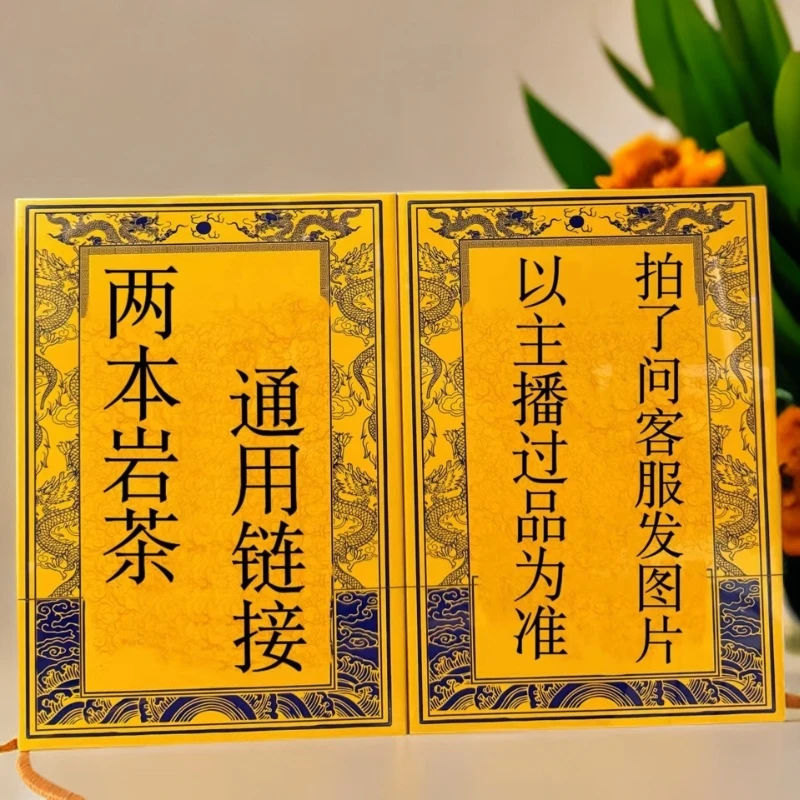 两本岩茶
通用链接
拍了问客服发图片
以主播过品为准